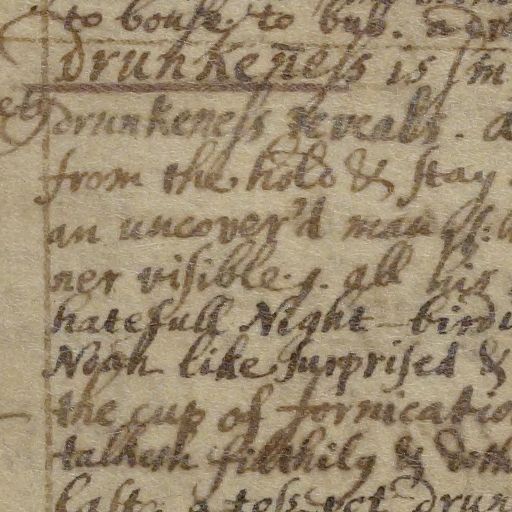 to bouse. to bub. a
Drunkeness is
drunkeness reveals.
from the hold & stay
an uncover'd man
ner visible. all his
hatefull Night-bird
Noah like surprised &
the cup of fornicatio
talketh filthily &
last. a toss-pot. drun